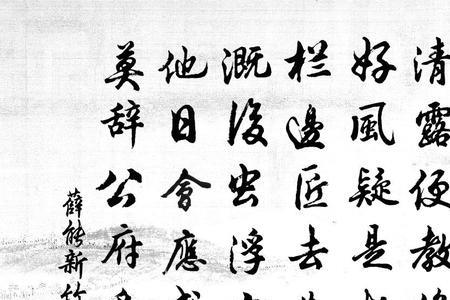 清露便教
好風疑是
栏邊匠去
溉後虫浮
他日會應
莫辞公府
薛能新竹